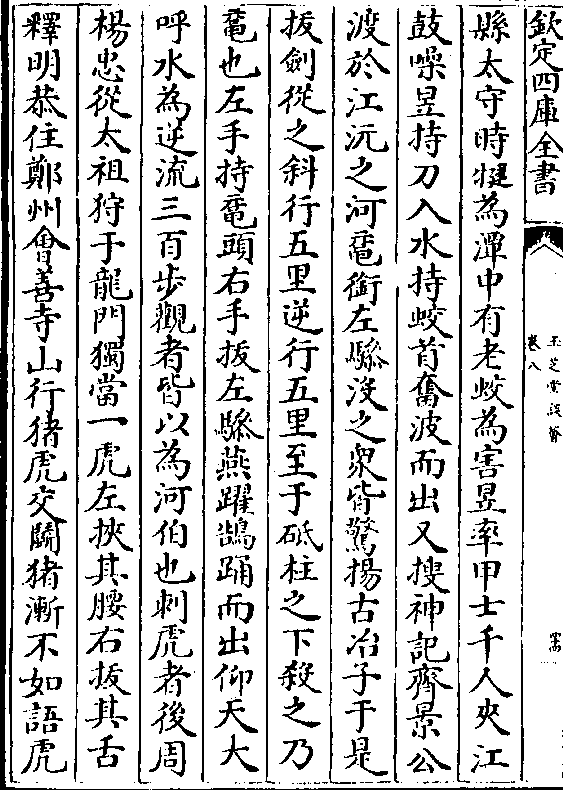 欽定四庫全書
玉芝堂談薈
卷八
縣太守時揵為潭中有老蛟為害昱率甲士千人夾江
鼓噪昱持刀入水持蛟首奮波而出又搜神記齊景公
渡於江沅之河黿銜左驂没之衆皆驚揚古冶子于是
拔劍從之斜行五里逆行五里至于砥柱之下殺之乃
黿也左手持黿頭右手拔左驂燕躍鵠踊而出仰天大
呼水為逆流三百步觀者皆以為河伯也刺虎者後周
楊忠從太祖狩于龍門獨當一虎左挾其腰右拔其舌
釋明恭住鄭州會善寺山行猪虎交鬭猪漸不如語虎